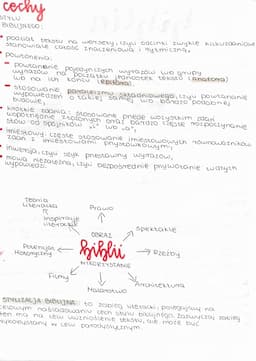 cechy
STYLU
BIBLIJNEGO:
• podział tekstu na wersety, czyli odcinki zwykle kilkuzdaniowe
stanowiące całość znaczeniową i rytmiczną,
• powtórzenia:
- powtarzanie pojedynczych wyrazów lub grupy
wyrazów na początku jednostek tekstu (anafora)
lub na ich końcu (epifora),
- stosowanie paralelizmu składniowego, czyli powtarzanie
wypowiedzeń o takiej samej lub bardzo podobnej
budowie,
• krótkie zdania: stosowane przede wszystkim zdań
współrzędnie złożonych oraz bardzo częste rozpoczynanie
słów od spójników "i" lub "a",
• imiesłowy: częste stosowanie imiesłowowych równoważników
zdań z imiesłowami przysłówkowymi,
• inwersja, czyli szyk przestawny wyrazów,
• mowa niezależna, czyli bezpośrednie przywołanie cudzych
wypowiedzi.
Teoria
literacka
Prawo
inspiracje
literackie
Spektakle
OBRAZ
Przemysł
Historyczny
Biblii
Rzeźby
W
Filmy
Architektura
Malarstwo
STYLIZACJA BIBLIJNA: to zabieg literacki, polegający na
celowym naśladowaniu cech stylu biblijnego. Zazwyczaj zabieg
ten ma na celu uwznioślenie tekstu, ale może być
wykorzystany w celu parodystycznym.